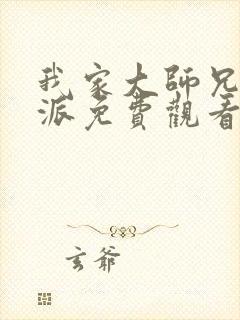 我家大師兄
派免費觀看
玄爺